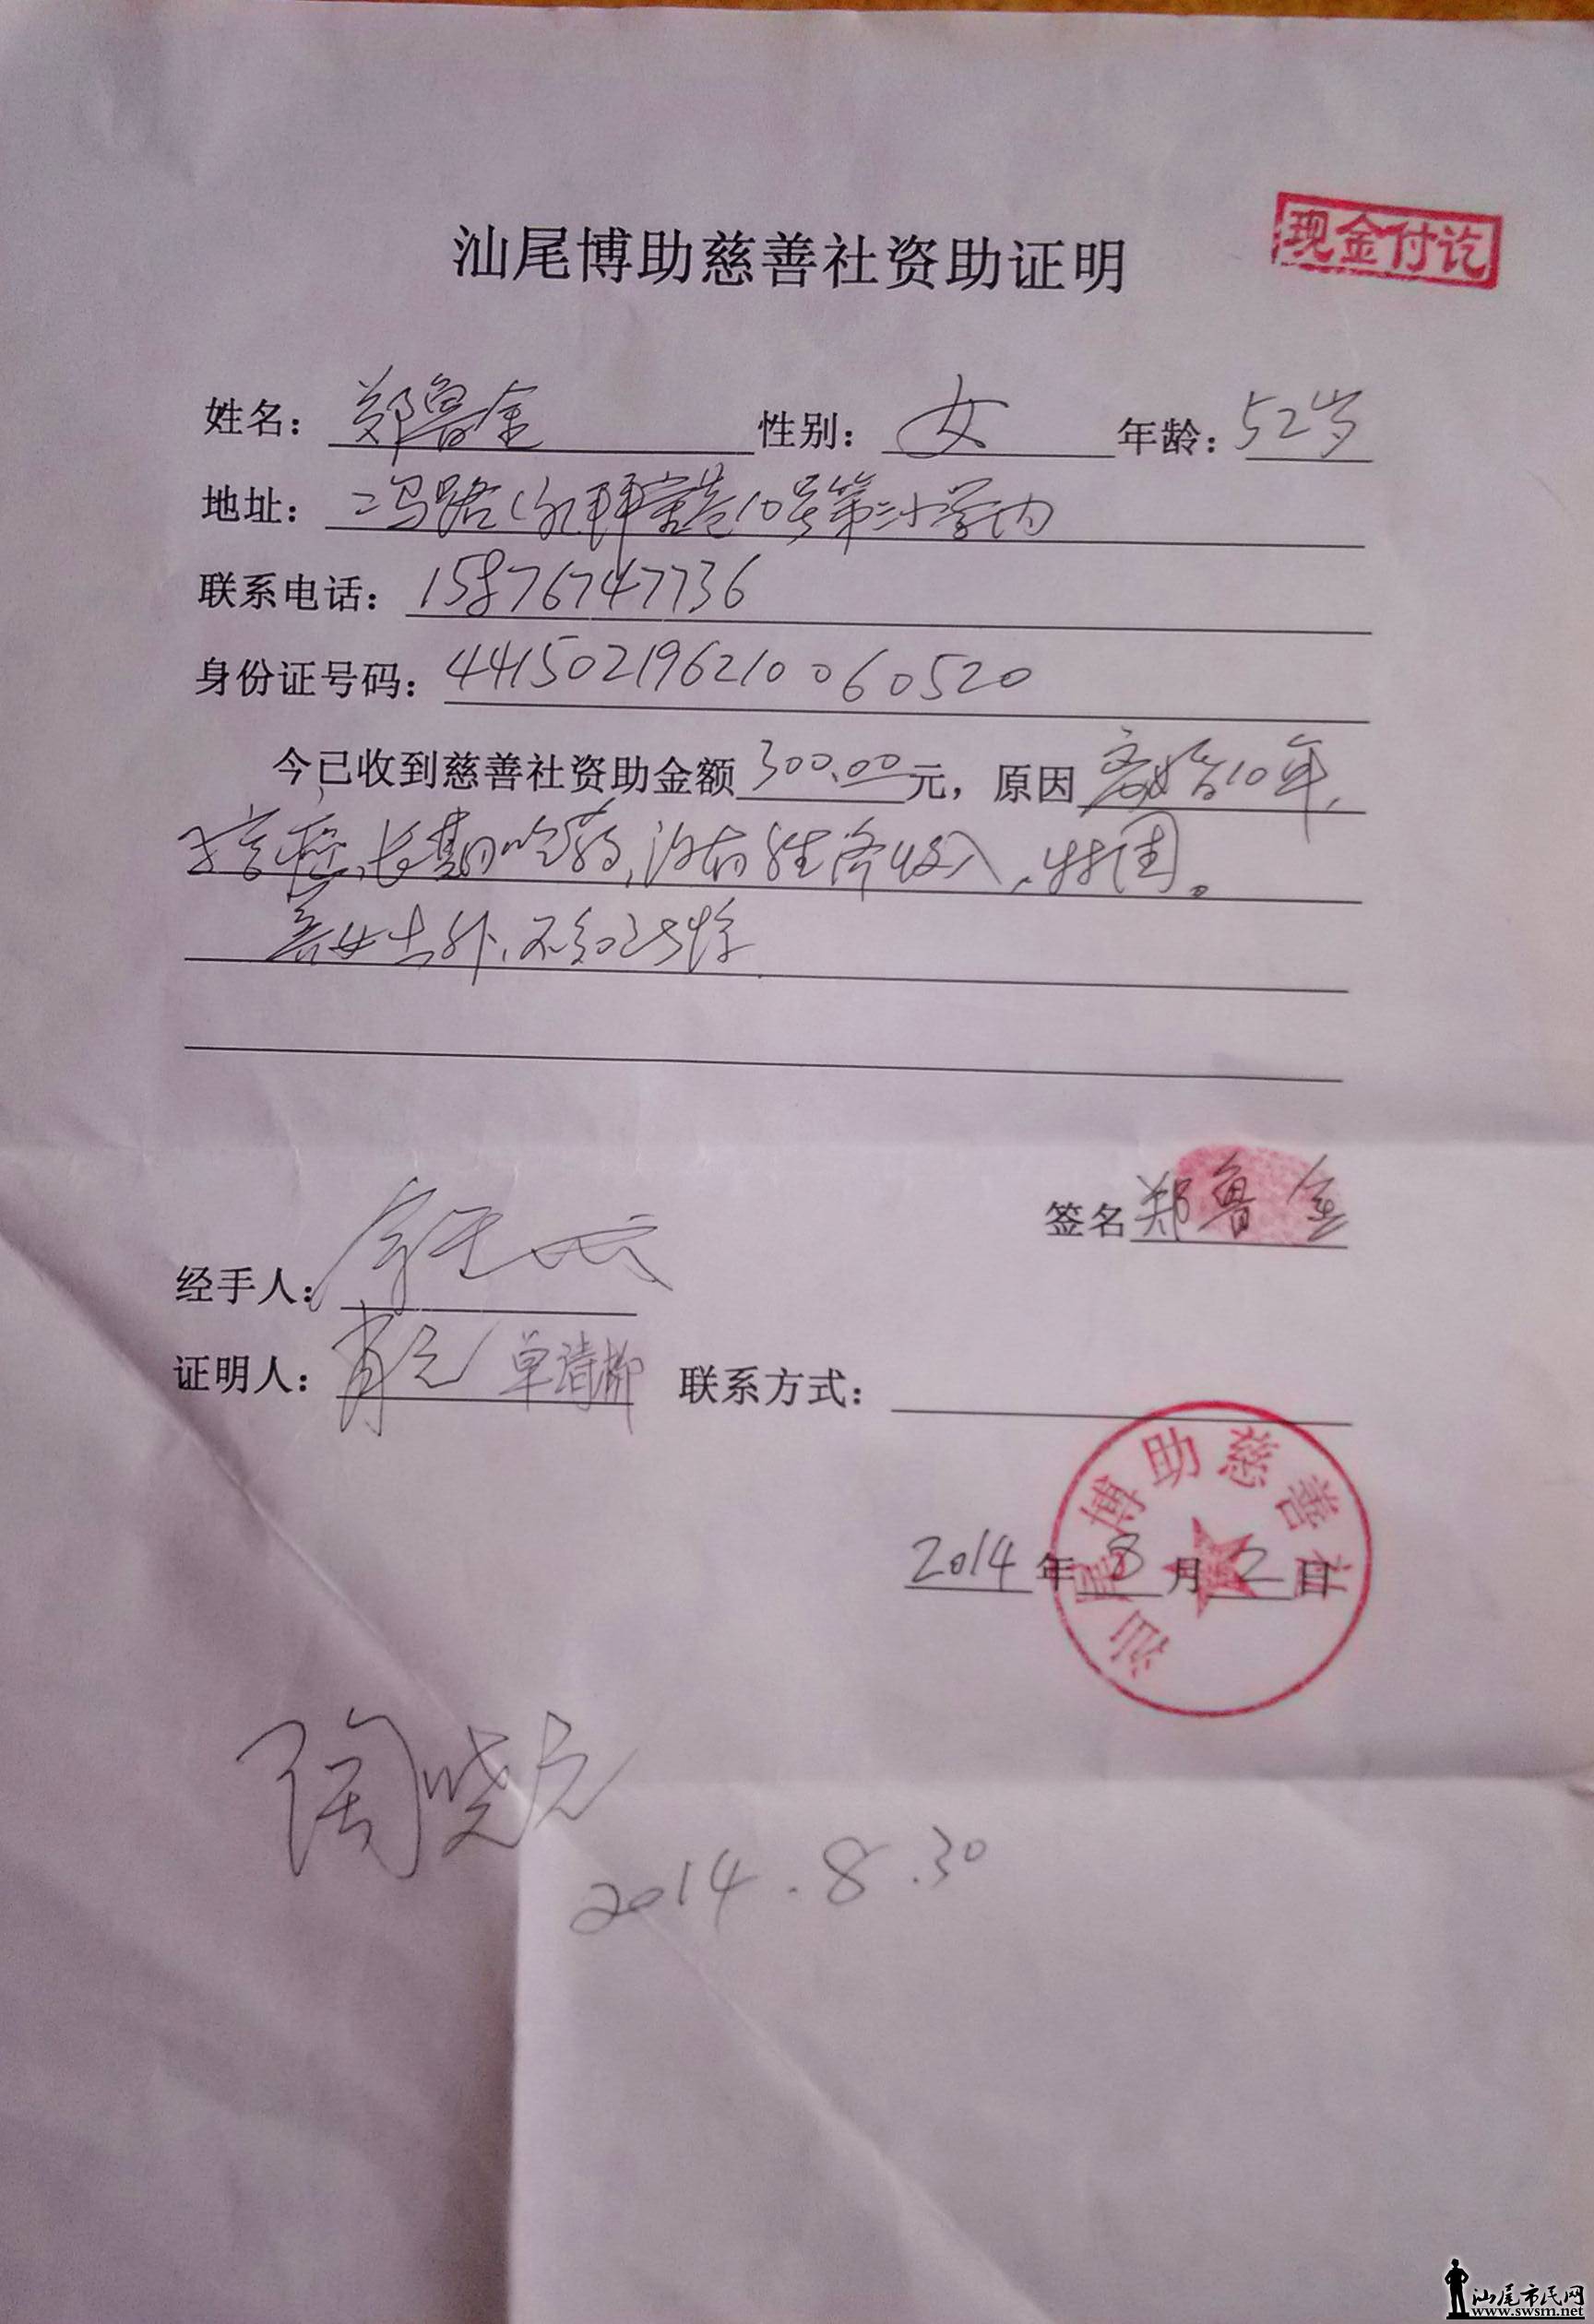 汕尾博助慈善社资助证明
现金付讫
姓名：郑鲁金 性别：女 年龄：52岁
地址：二马路 10号第三小学内
联系电话：15876747736
身份证号码：441502196210060520
今已收到慈善社资助金额300.00元，原因离婚10年，
长期吃药，没有经济收入，特困。
养女出外，不知
签名郑鲁金
经手人：
证明人：肖 单清柳 联系方式：
2014年8月2日
汕尾博助慈善社
陶晓
2014.8.30
汕尾市民网
www.swsm.net